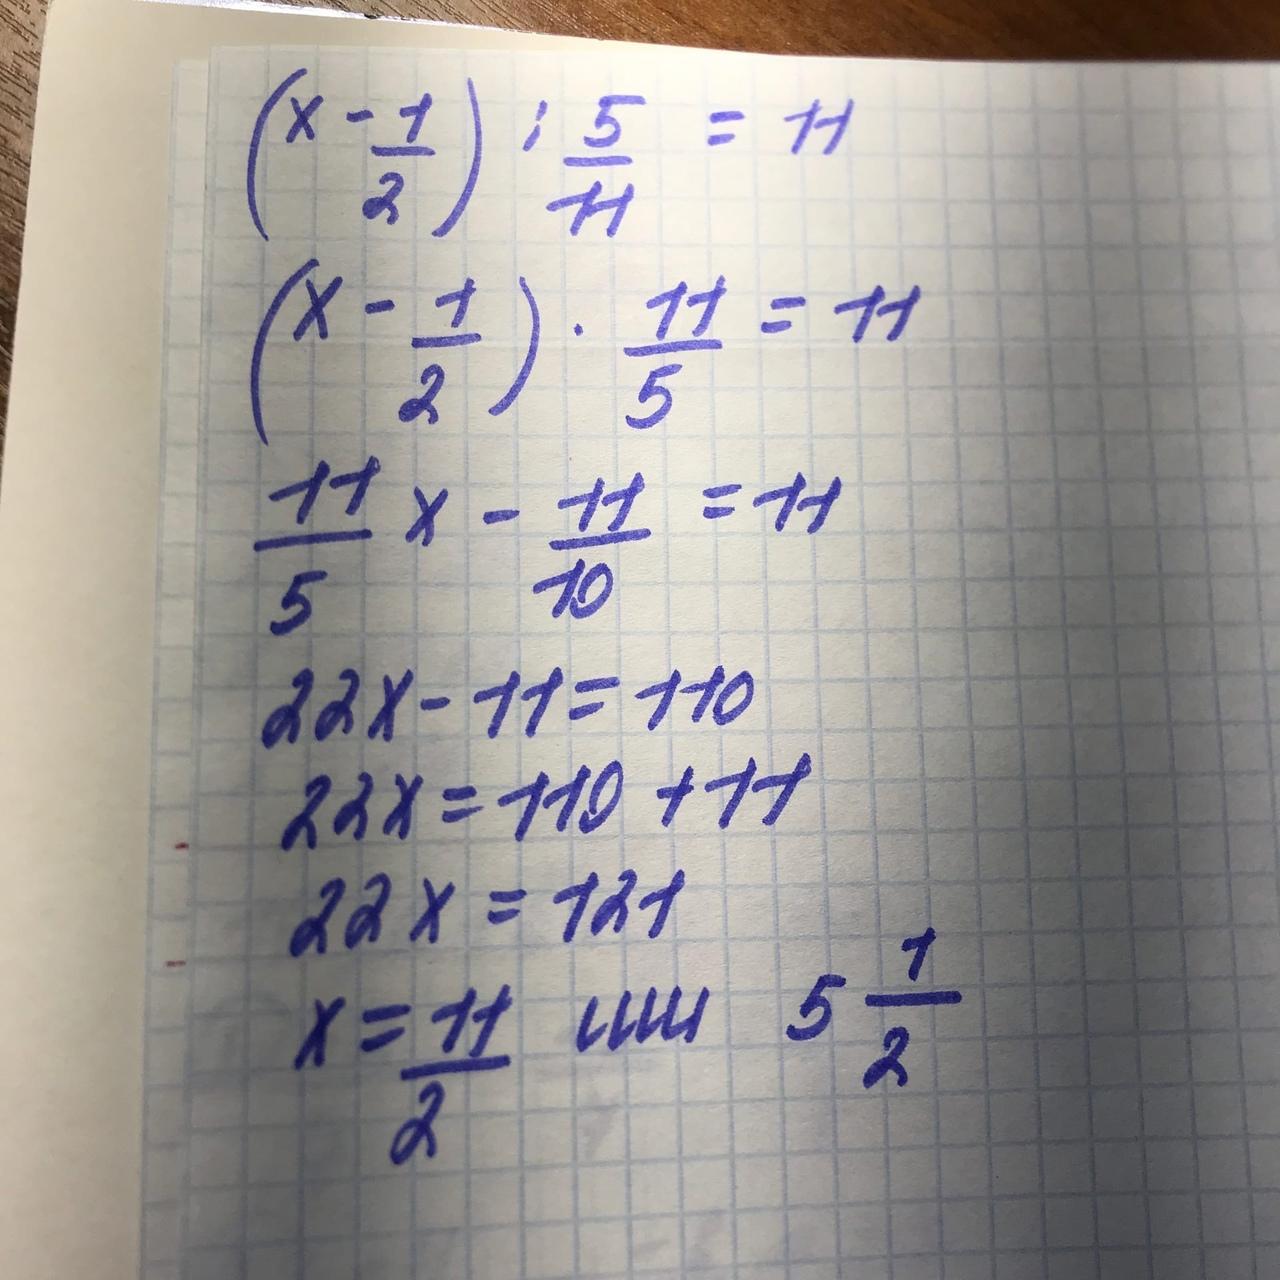 (x - 1/2) : 5/11 = 11
(x - 1/2) · 11/5 = 11
11/5 x - 11/10 = 11
22x - 11 = 110
22x = 110 + 11
22x = 121
x = 11/2 или 5 1/2